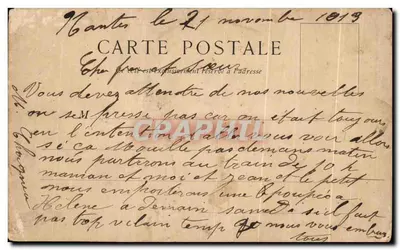 Nantes le 21 novembre 1913
CARTE POSTALE
Cher frere et Sœur
Ce côté est exclusivement réservé à l'adresse
Vous devez attendre de nos nouvelles
on se presse pas car on était toujours
en l'intention vous voir alors
si ça Mouille pas demain matin
nous partirons du train de 10 h
maman et moi et Jean et le petit
nous emporterons une poupée a
Helene a demain samedi si il fait
pas trop vilain temp nous vous embras
tous
CARTORUM